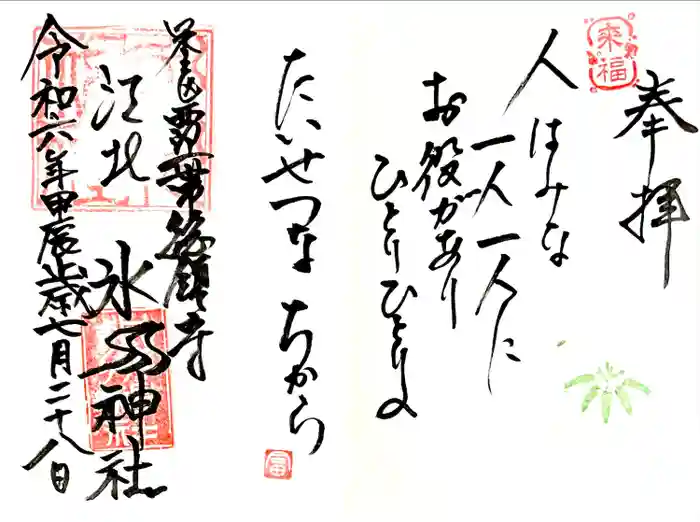 奉拝
来福
人はみな
一人一人に
お役があり
ひとりひとりの
たいせつなちから
冨
江北
氷川神社
令和六年甲辰歳七月二十八日